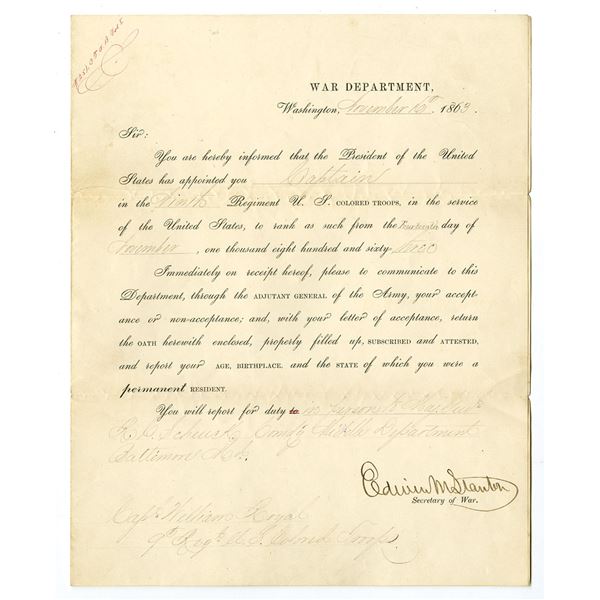 WAR DEPARTMENT,
Washington, November 16th, 1863.
Sir:
You are hereby informed that, the President of the United
States has appointed you Captain
in the Ninth Regiment U. S. COLORED TROOPS, in the service
of the United States, to rank as such from the fourteenth day of
November, one thousand eight hundred and sixty-three
Immediately on receipt hereof, please to communicate to this
Department, through the ADJUTANT GENERAL of the Army, your accept-
ance or non-acceptance; and, with your letter of acceptance, return
the OATH herewith enclosed, properly filled up, SUBSCRIBED and ATTESTED,
and report your AGE, BIRTHPLACE, and the STATE of which you were a
permanent RESIDENT.
You will report for duty to in person to Maj Genl
R. C. Schenck, Comdg Middle Department
Baltimore Md.
Edwin M Stanton
Secretary of War.
Capt William
9" Regt U.S. Colored Troops